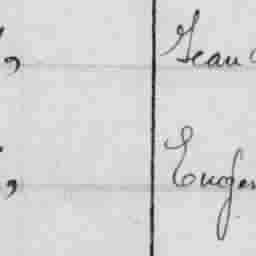 , Jean
, Eugen